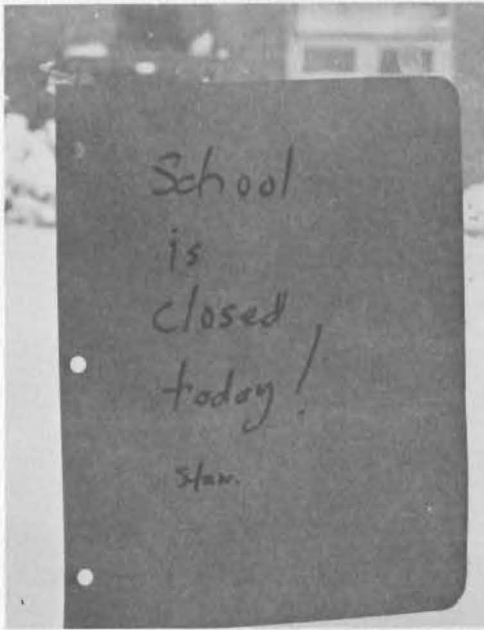 School
is
closed
today!